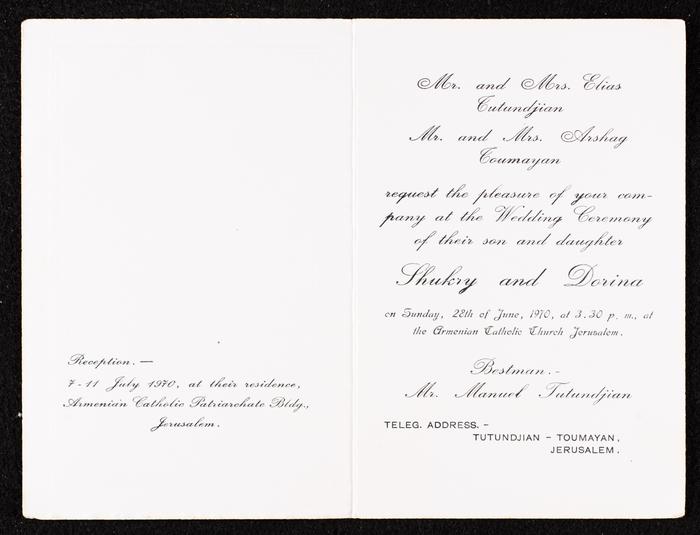 Reception. —
7-11 July 1970, at their residence,
Armenian Catholic Patriarchate Bldg.,
Jerusalem.
Mr. and Mrs. Elias
Tutundjian
Mr. and Mrs. Arshag
Toumayan
request the pleasure of your com-
pany at the Wedding Ceremony
of their son and daughter
Shukry and Dorina
on Sunday, 28th of June, 1970, at 3.30 p. m., at
the Armenian Catholic Church Jerusalem.
Bestman.-
Mr. Manuel Tutundjian
TELEG. ADDRESS. -
TUTUNDJIAN - TOUMAYAN,
JERUSALEM.